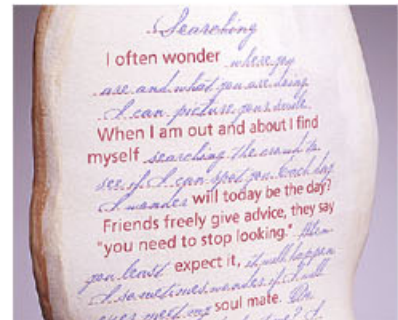 Searching
I often wonder where you
are and what you are doing
I can picture your smile.
When I am out and about I find
myself searching the crowd to
see if I can spot you. Each day
I wonder will today be the day?
Friends freely give advice, they say
"you need to stop looking." When
you least expect it, it will happen
I sometimes wonder if I will
ever meet my soul mate.